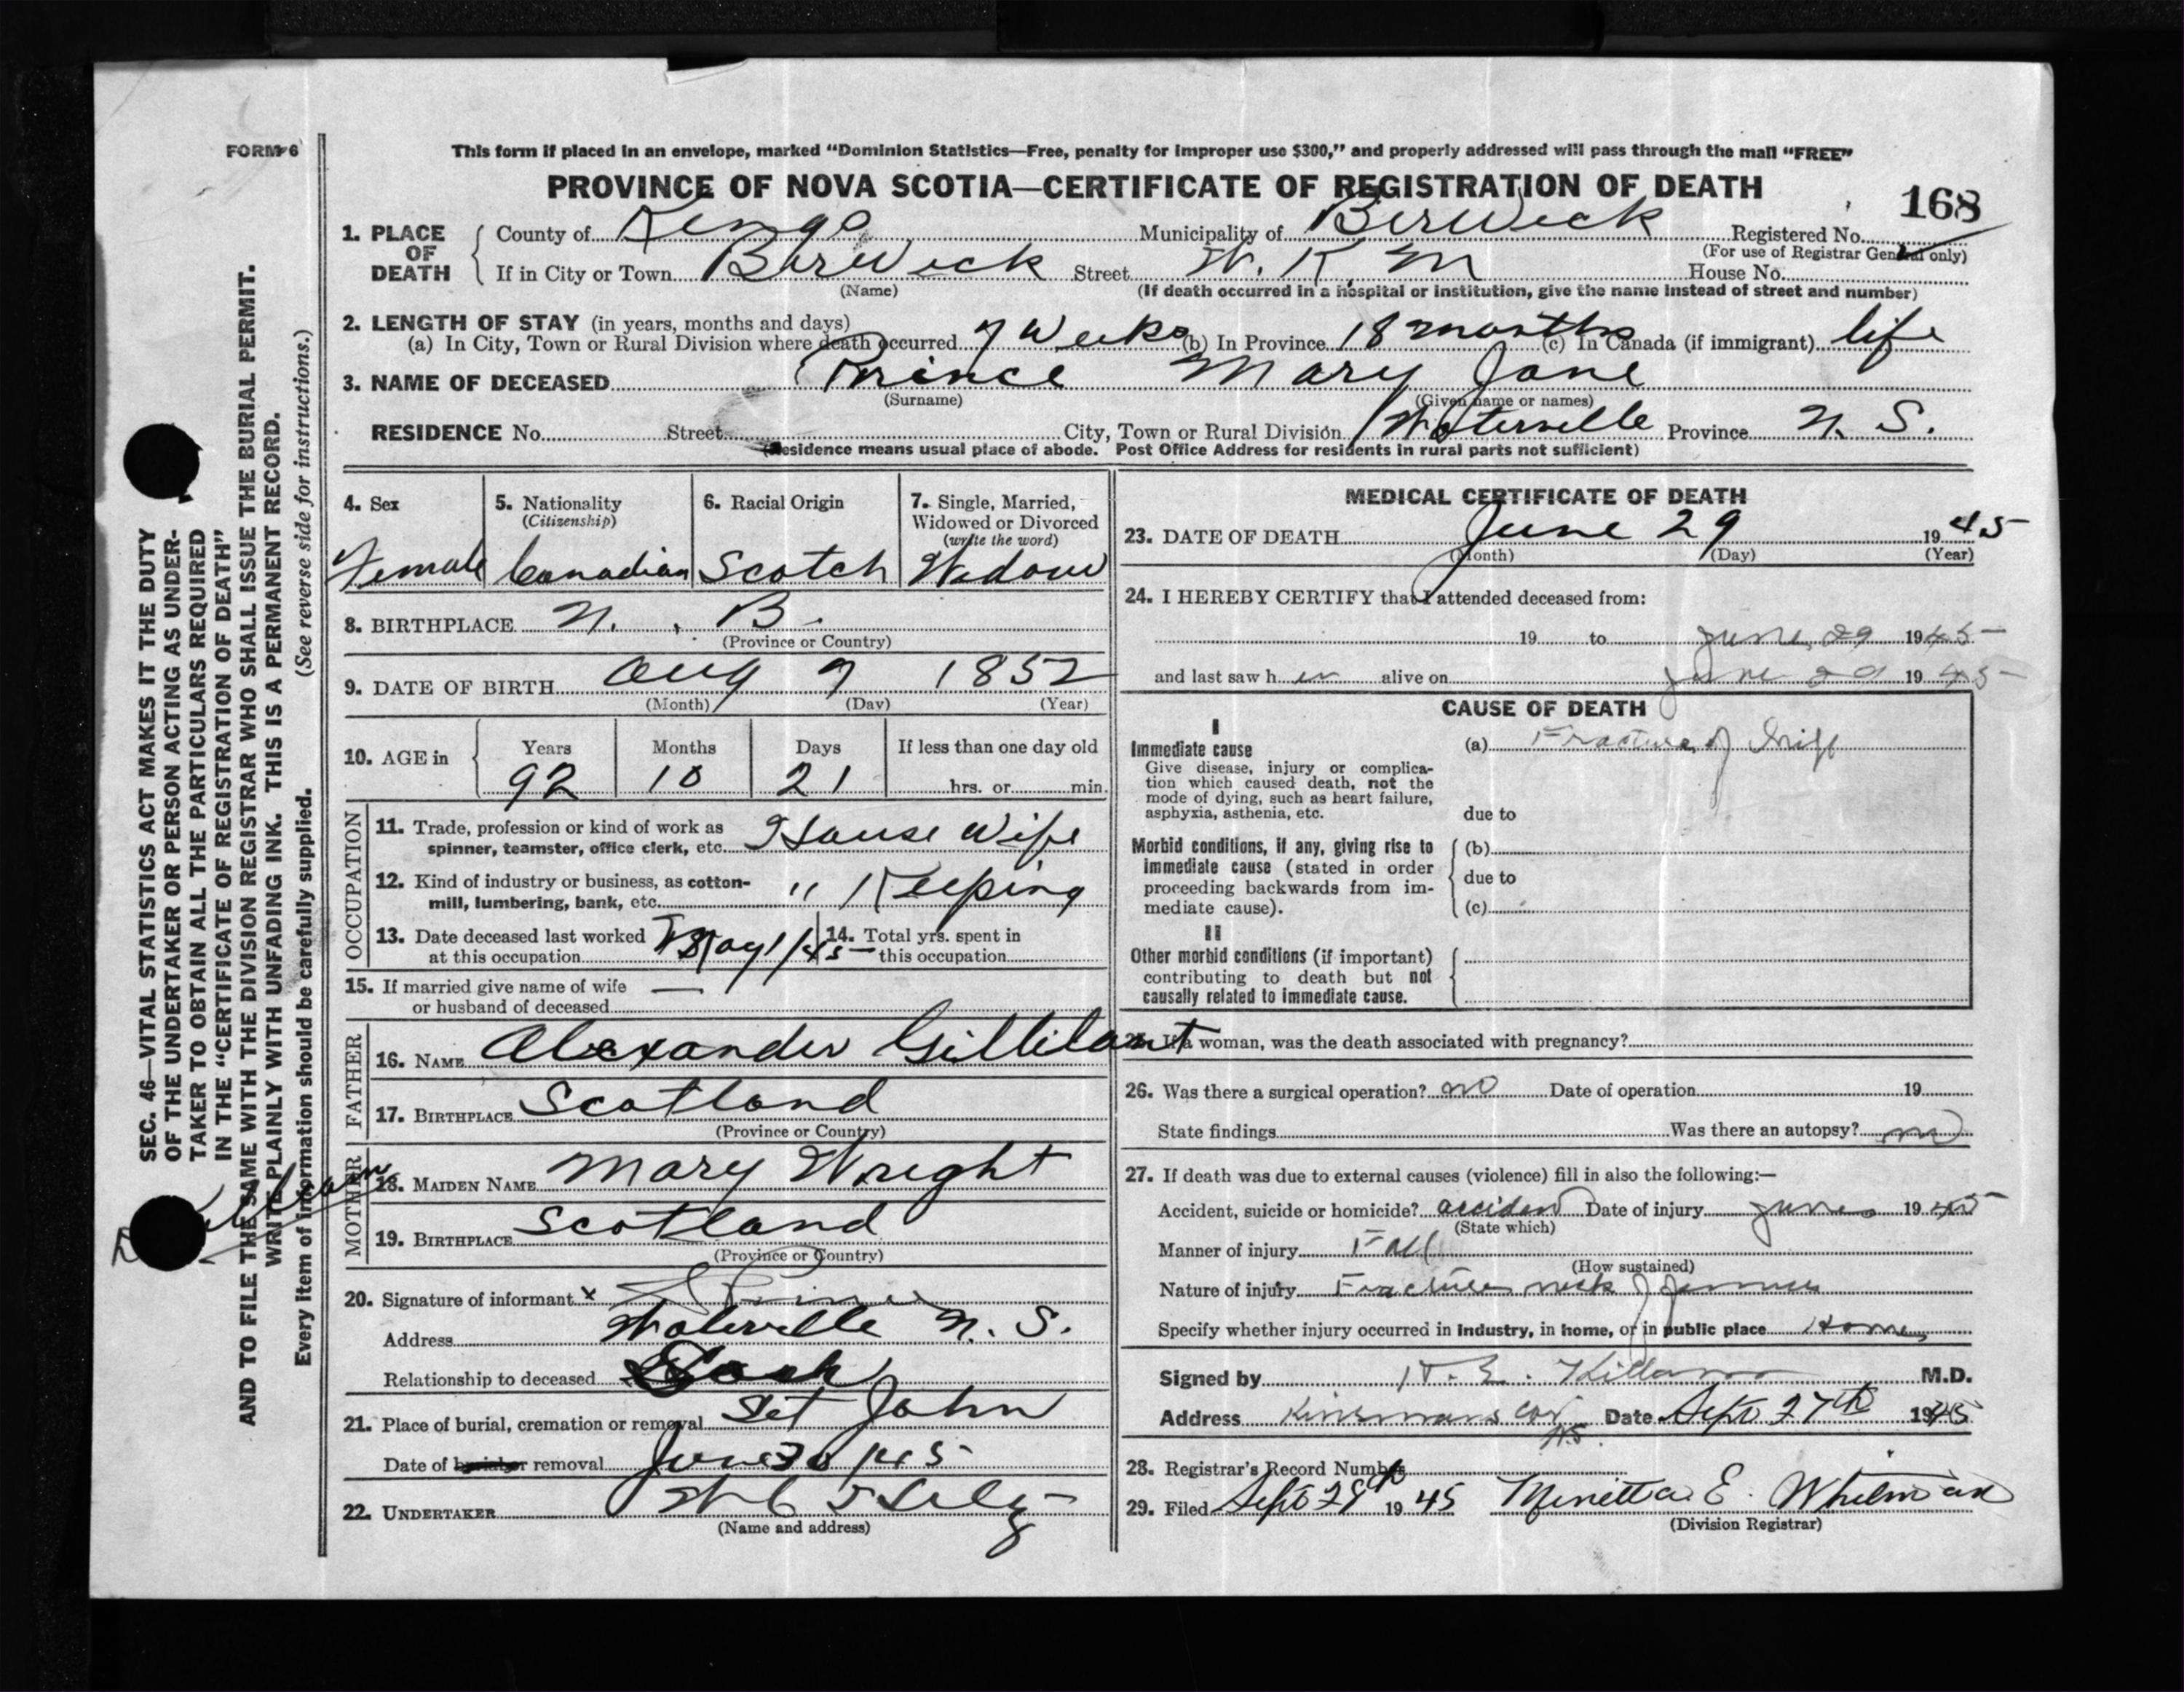 FORM 6
This form if placed in an envelope, marked “Dominion Statistics—Free, penalty for improper use $300,” and properly addressed will pass through the mail “FREE”
PROVINCE OF NOVA SCOTIA—CERTIFICATE OF REGISTRATION OF DEATH
168
1. PLACE OF DEATH
County of Kings Municipality of Berwick Registered No.
(For use of Registrar General only)
If in City or Town Berwick Street W. K. M House No.
(Name) (If death occurred in a hospital or institution, give the name instead of street and number)
2. LENGTH OF STAY (in years, months and days)
(a) In City, Town or Rural Division where death occurred 7 Weeks (b) In Province 18 months (c) In Canada (if immigrant) life
3. NAME OF DECEASED Prince Mary Jane
(Surname) (Given name or names)
RESIDENCE No. Street City, Town or Rural Division Waterville Province N. S.
(Residence means usual place of abode. Post Office Address for residents in rural parts not sufficient)
4. Sex
Female
5. Nationality
(Citizenship)
Canadian
6. Racial Origin
Scotch
7. Single, Married,
Widowed or Divorced
(write the word)
Widow
8. BIRTHPLACE N. B.
(Province or Country)
9. DATE OF BIRTH Aug 7 1852
(Month) (Day) (Year)
10. AGE in
Years Months Days If less than one day old
92 10 21 hrs. or min.
OCCUPATION
11. Trade, profession or kind of work as
spinner, teamster, office clerk, etc. House Wife
12. Kind of industry or business, as cotton-
mill, lumbering, bank, etc. " Keeping
13. Date deceased last worked
at this occupation May 1/45
14. Total yrs. spent in
this occupation
15. If married give name of wife
or husband of deceased —
FATHER
16. NAME Alexander Gillilant
17. BIRTHPLACE Scotland
(Province or Country)
MOTHER
18. MAIDEN NAME Mary Wright
19. BIRTHPLACE Scotland
(Province or Country)
20. Signature of informant x Prince
Address Waterville N. S.
Relationship to deceased
21. Place of burial, cremation or removal Set John
Date of burial or removal June 30/45
22. UNDERTAKER
(Name and address)
MEDICAL CERTIFICATE OF DEATH
23. DATE OF DEATH June 29 1945
(Month) (Day) (Year)
24. I HEREBY CERTIFY that I attended deceased from:
19 to June 29 1945
and last saw h er alive on June 29 1945
CAUSE OF DEATH
I
Immediate cause
Give disease, injury or complica-
tion which caused death, not the
mode of dying, such as heart failure,
asphyxia, asthenia, etc.
(a) Fracture of
due to
Morbid conditions, if any, giving rise to
immediate cause (stated in order
proceeding backwards from im-
mediate cause).
(b)
due to
(c)
II
Other morbid conditions (if important)
contributing to death but not
causally related to immediate cause.
25. If a woman, was the death associated with pregnancy?
26. Was there a surgical operation? no Date of operation 19
State findings Was there an autopsy? no
27. If death was due to external causes (violence) fill in also the following:—
Accident, suicide or homicide? accident Date of injury June 1945
(State which)
Manner of injury Fall
(How sustained)
Nature of injury Fracture neck of femur
Specify whether injury occurred in industry, in home, or in public place Home
Signed by Killam M.D.
Address Kinsmans Cor N.S. Date Sept 27th 1945
28. Registrar's Record Number
29. Filed Sept 29th 1945 Minetta E. Whitman
(Division Registrar)
SEC. 46—VITAL STATISTICS ACT MAKES IT THE DUTY
OF THE UNDERTAKER OR PERSON ACTING AS UNDER-
TAKER TO OBTAIN ALL THE PARTICULARS REQUIRED
IN THE “CERTIFICATE OF REGISTRATION OF DEATH”
AND TO FILE THE SAME WITH THE DIVISION REGISTRAR WHO SHALL ISSUE THE BURIAL PERMIT.
WRITE PLAINLY WITH UNFADING INK. THIS IS A PERMANENT RECORD.
Every item of information should be carefully supplied. (See reverse side for instructions.)